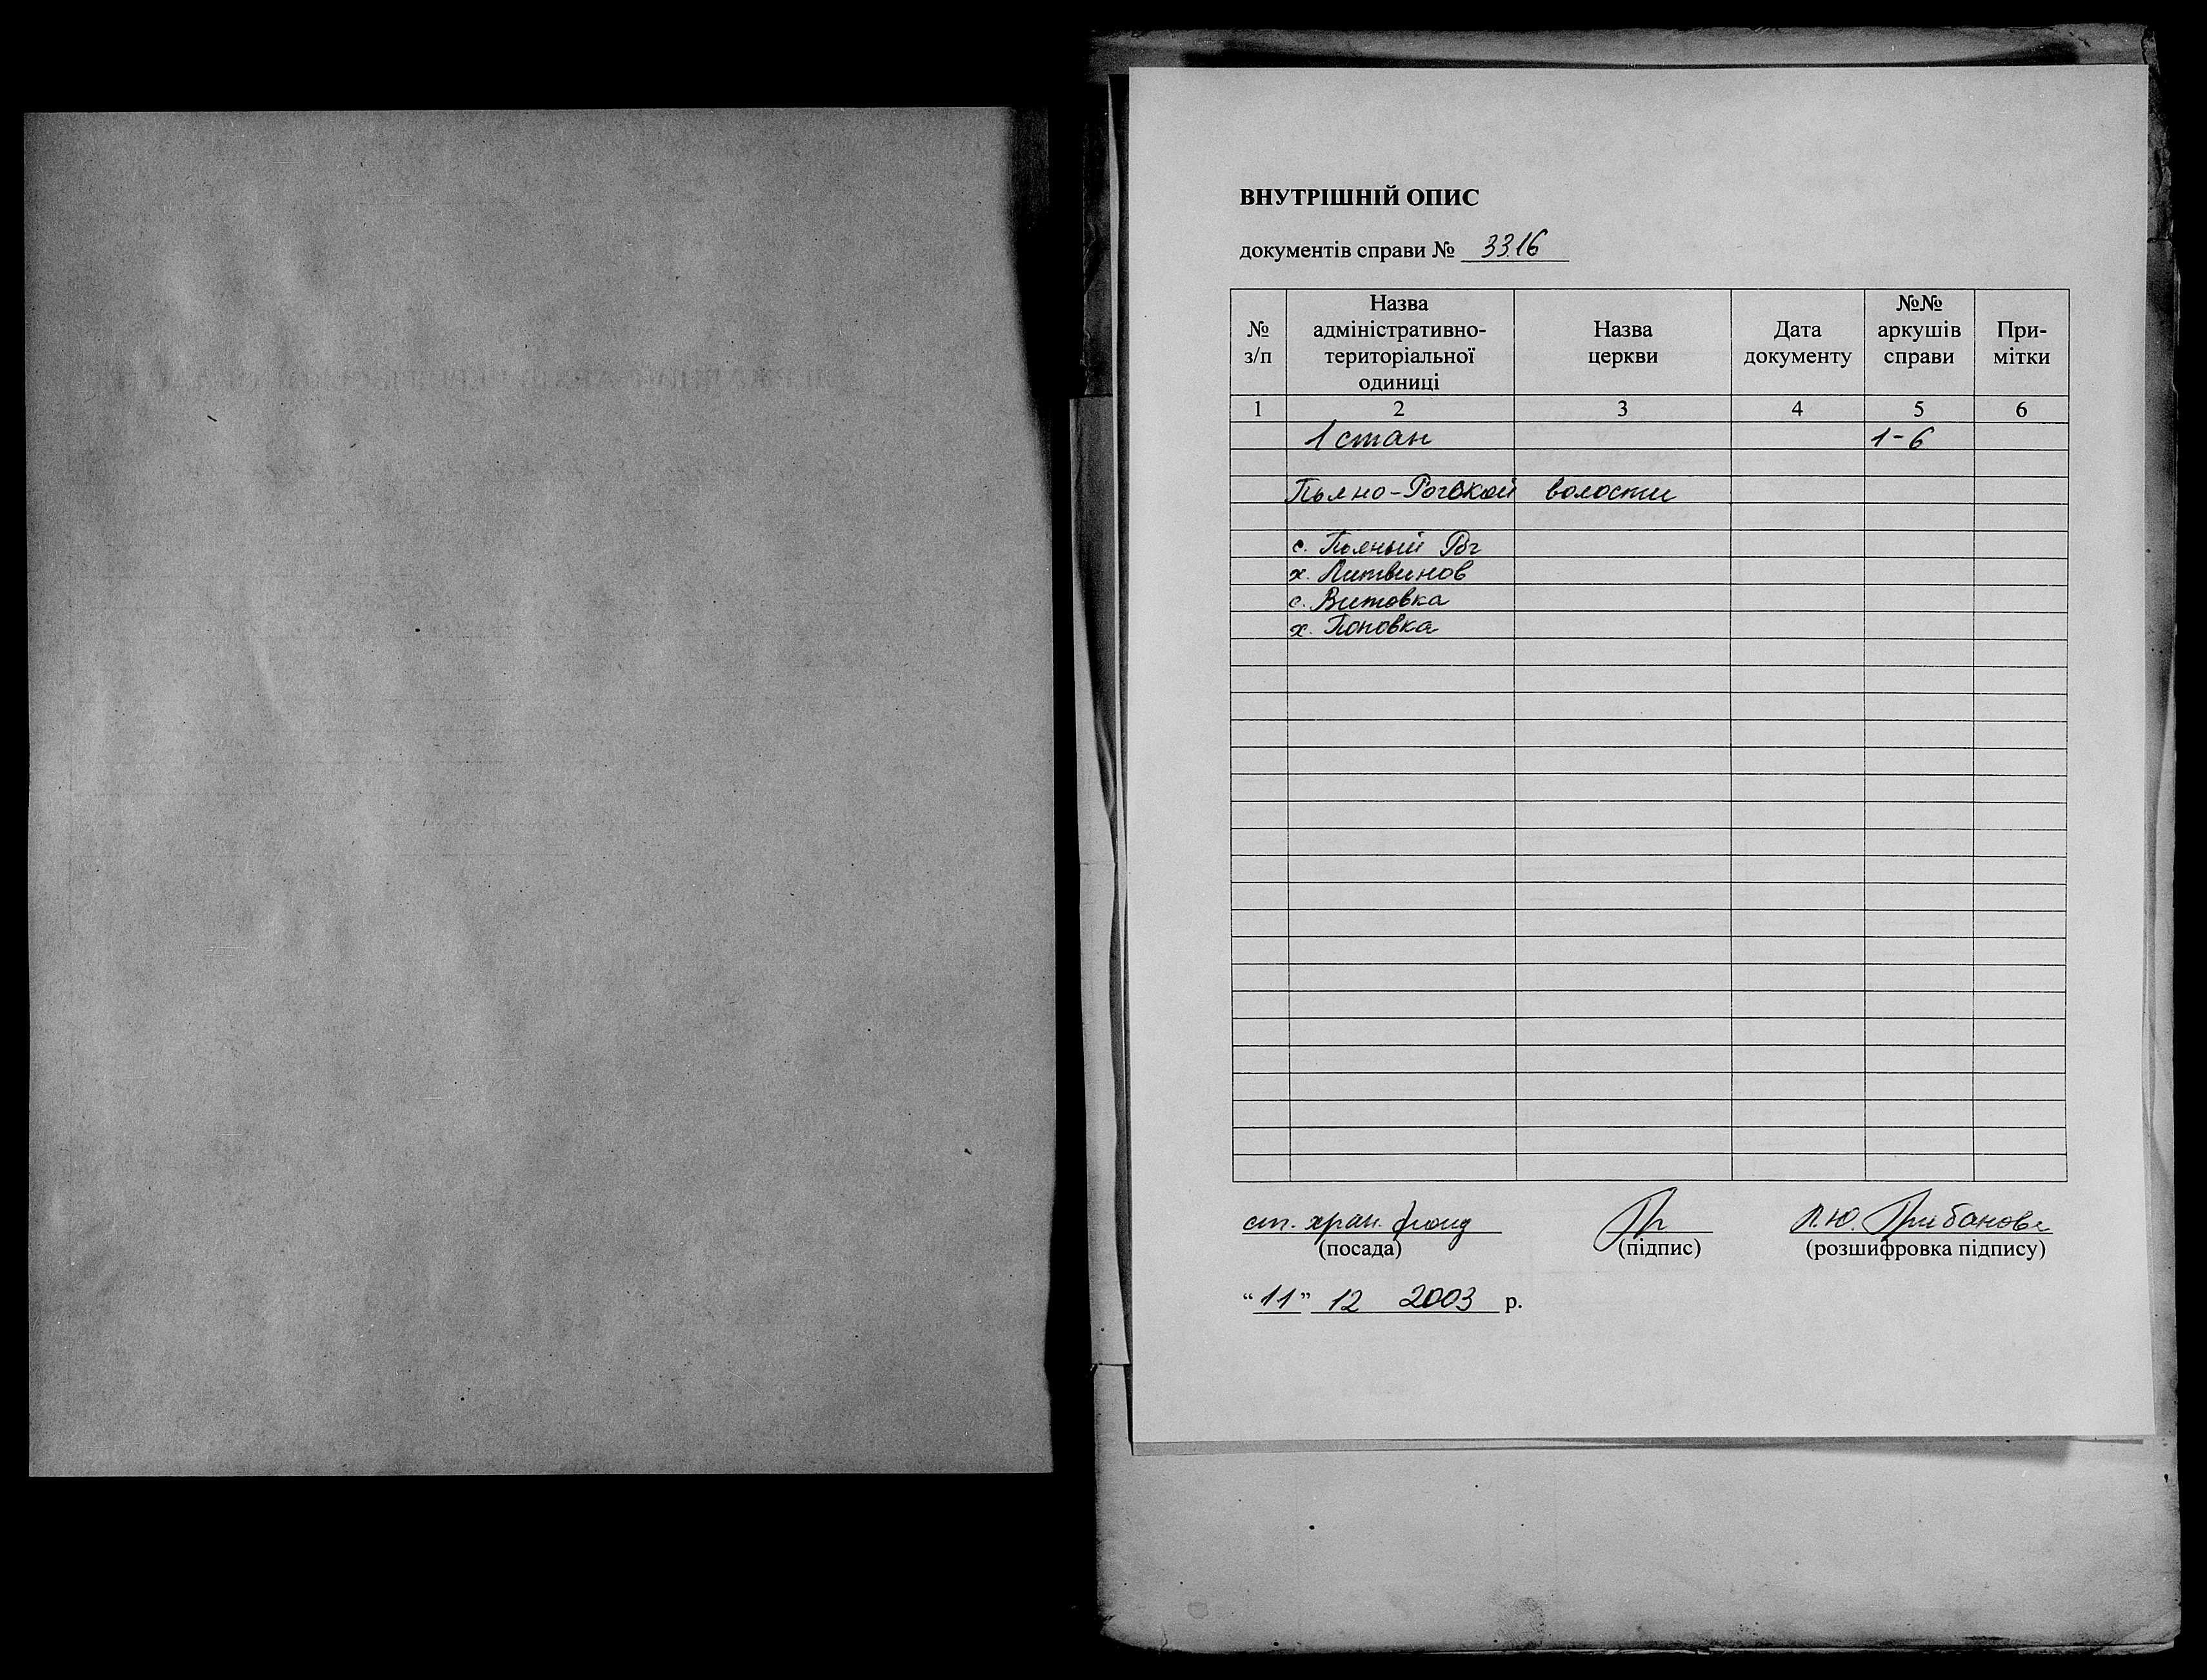 ВНУТРІШНІЙ ОПИС
документів справи № 3316
№ з/п
Назва адміністративно-територіальної одиниці
Назва церкви
Дата документу
№№ аркушів справи
При-мітки
1 2 3 4 5 6
1 стан 1-6
Пьяно-Рогской волости
с. Пьяный Рог
х. Литвинов
с. Витовка
х. Поповка
ст. хран. фонд
(посада) (підпис) (розшифровка підпису)
"11" 12 2003 р.